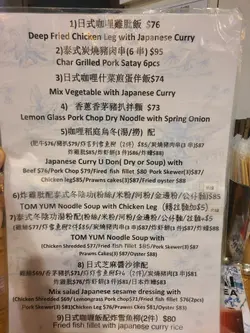 1)日式咖喱雞肶飯 $76
Deep Fried Chicken Leg with Japanese Curry
2)泰式炭燒豬肉串(6串) $95
Char Grilled Pork Satay 6pcs
3)日式咖喱什菜煎蛋伴飯$74
Mix Vegetable with Japanese Curry
4) 香蔥香茅豬扒拌麵 $73
Lemon Glass Pork Chop Dry Noodle with Spring Onion
5)咖喱稻庭烏冬(湯/撈) 配
Japanese Curry U Don( Dry or Soup) with
Beef $76/Pork Chop $79/Fried fish fillet $80 Pork Skewer(3)$87
Chicken leg$85/Prawns cakes(3)$87/Fried oyster $88
TOM YUM Noodle Soup with Chicken Leg
TOM YUM Noodle Soup with
(Chicken Shredded $77/Fried fish fillet $85/Pork Skewer(3)$87
Prawn Cakes(3)$87/Oyster $88)
8) 日式芝麻醬沙律配
Mix salad Japanese sesame dressing with
(Chicken Shredded $69/Lemongrass Pork chop$71/Fried fish fillet $76(2pcs)
9)日式咖喱飯配炸雪魚柳(2件) $80
Fried fish fillet with japanese curry rice